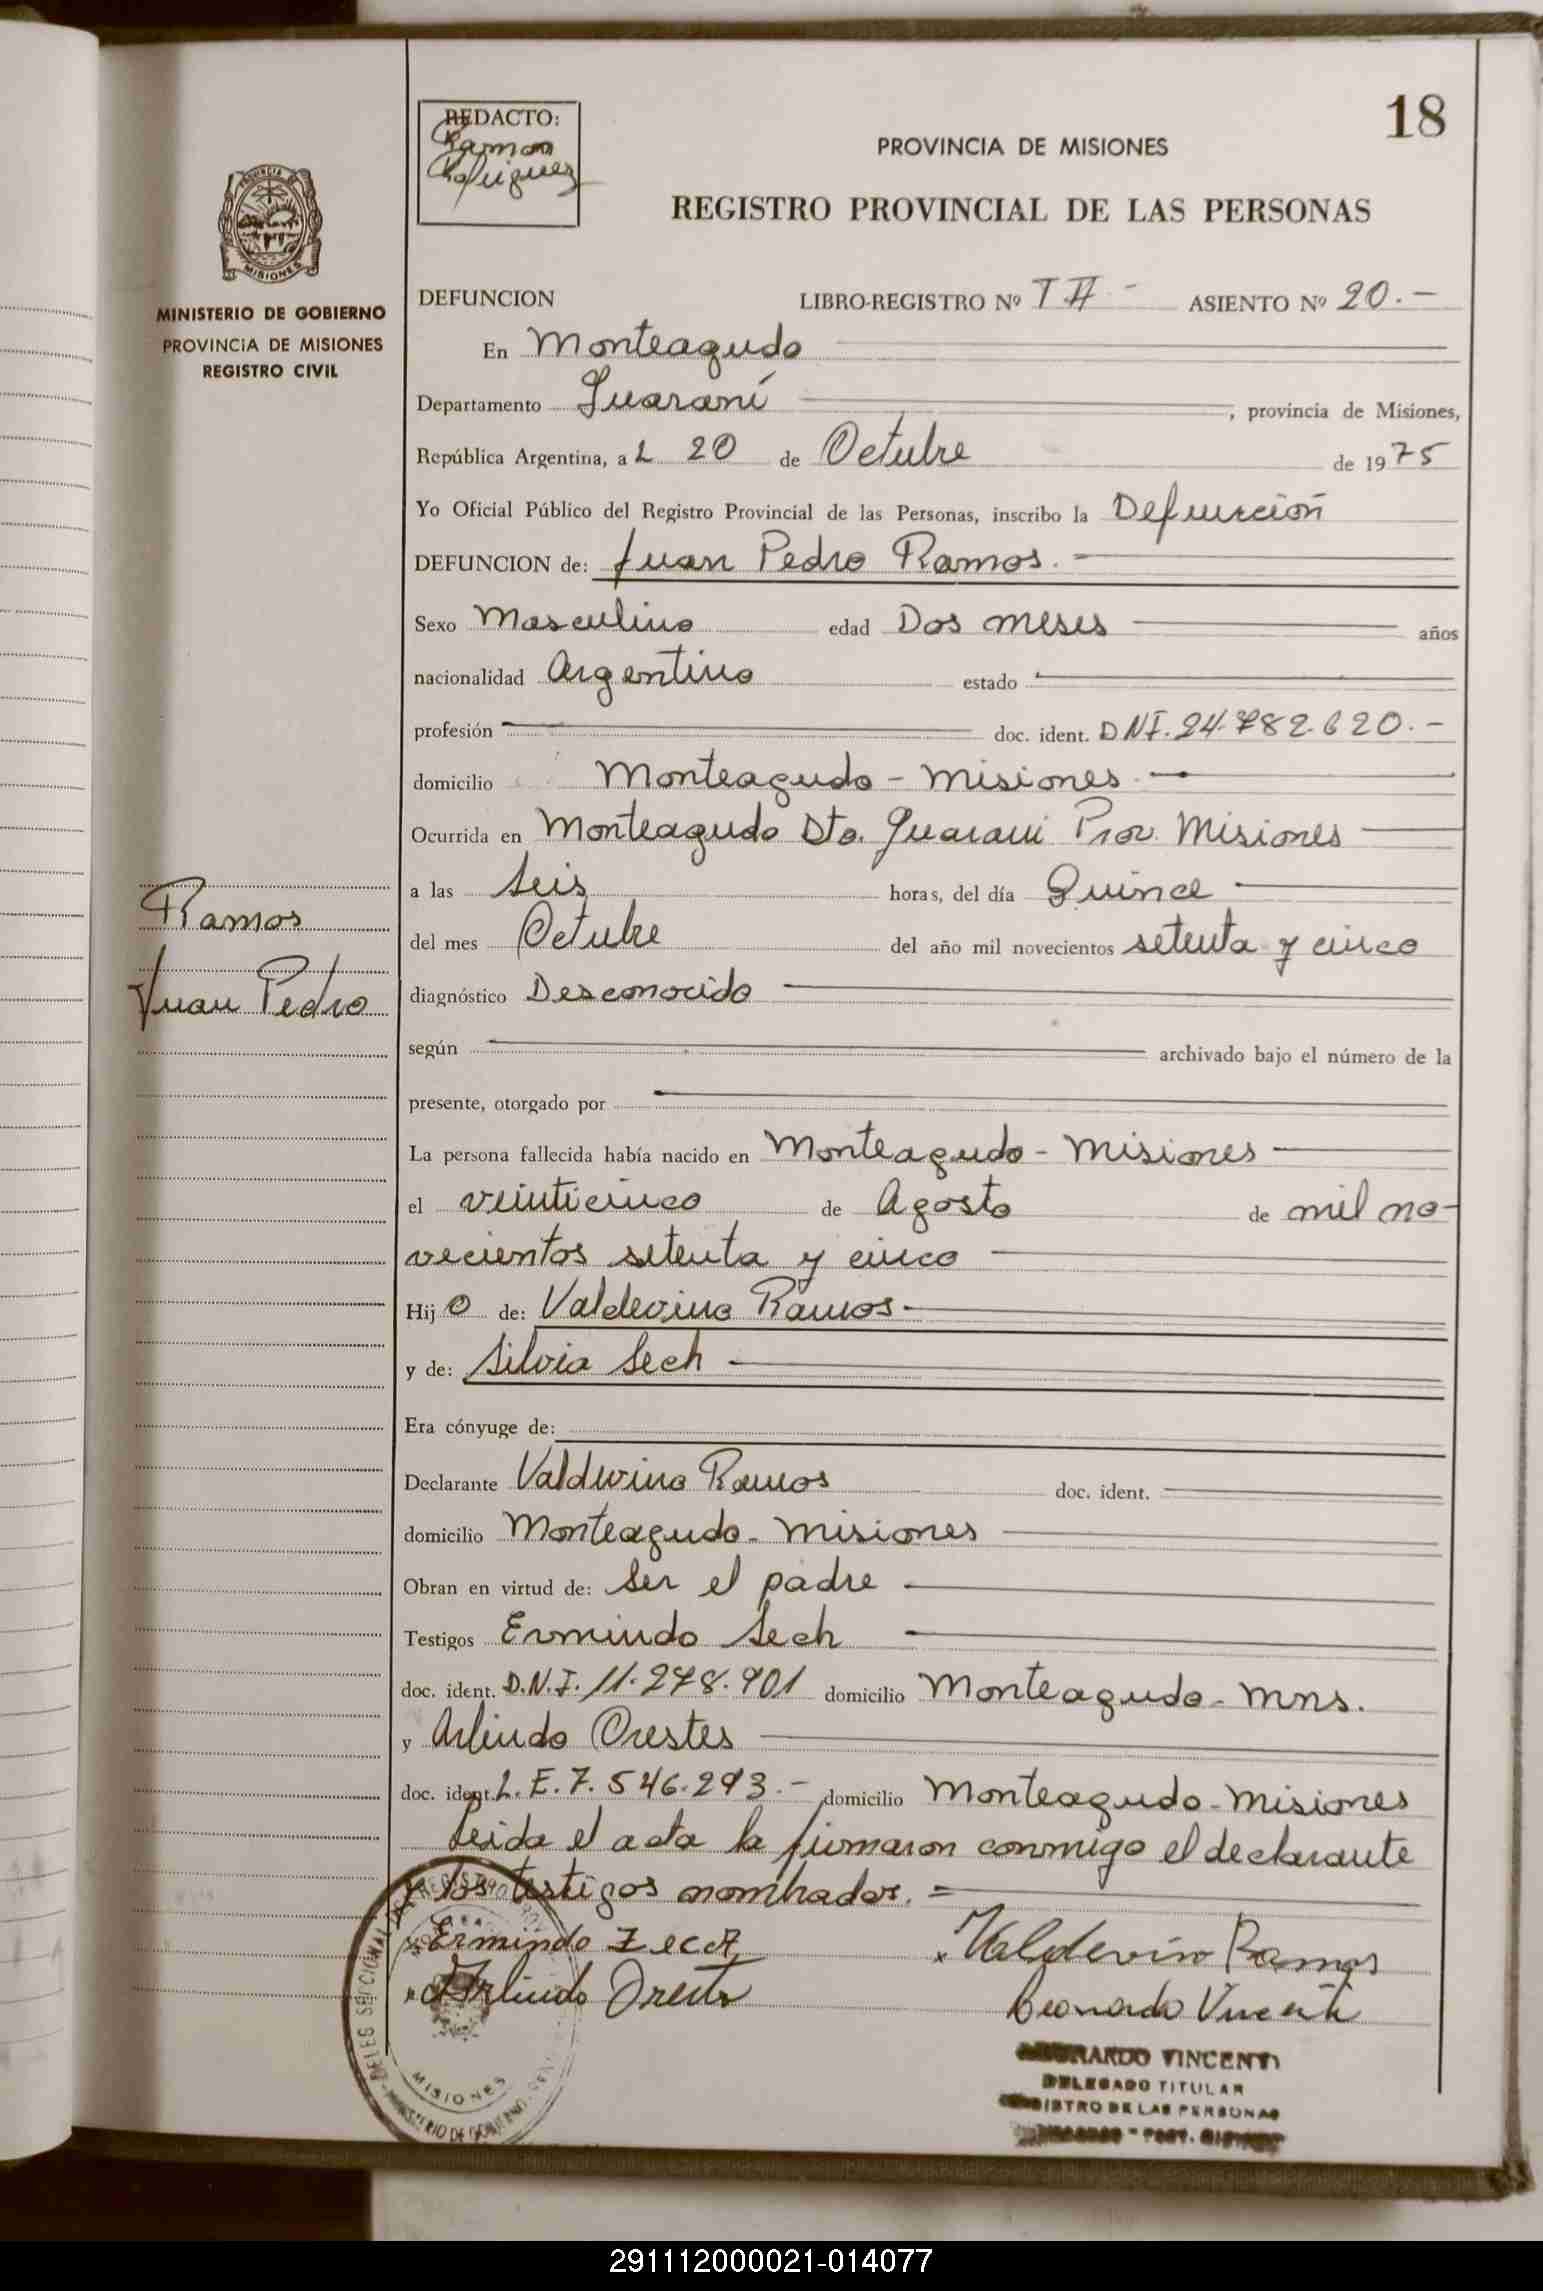 18
REDACTO:
Ramon
Rodriguez
PROVINCIA DE MISIONES
REGISTRO PROVINCIAL DE LAS PERSONAS
PROVINCIA DE
MISIONES
MINISTERIO DE GOBIERNO
PROVINCIA DE MISIONES
REGISTRO CIVIL
DEFUNCION LIBRO-REGISTRO Nº ASIENTO Nº 20.-
En Monteagudo
Departamento Guaraní, provincia de Misiones,
República Argentina, a L 20 de Octubre de 1975
Yo Oficial Público del Registro Provincial de las Personas, inscribo la Defunción
DEFUNCION de: Juan Pedro Ramos.
Sexo Masculino edad Dos meses años
nacionalidad Argentino estado
profesión doc. ident. DNI. 24.782.620.-
domicilio Monteagudo - Misiones
Ocurrida en Monteagudo Dto. Guarani Prov. Misiones
a las Seis horas, del día Quince
del mes Octubre del año mil novecientos setenta y cinco
diagnóstico Desconocido
según archivado bajo el número de la
presente, otorgado por
La persona fallecida había nacido en Monteagudo - Misiones
el veinticinco de Agosto de mil no-
vecientos setenta y cinco
Hij o de: Valdevino Ramos.
y de: Silvia Sech
Era cónyuge de:
Declarante Valdevino Ramos doc. ident.
domicilio Monteagudo - Misiones
Obran en virtud de: Ser el padre
Testigos Ermindo Sech
doc. ident. D.N.I. 11.278.901 domicilio Monteagudo - Mns.
y Arlindo Orestes
doc. ident. L.E. 7.546.293.- domicilio Monteagudo - Misiones
Leida el acta la firmaron conmigo el declarante
y los testigos nombrados. =
Ramos
Juan Pedro
x Ermindo Zech
x Valdevino Ramos
x Arlindo Oreste
Leonardo Vincenti
MISIONES
LEONARDO VINCENTI
DELEGADO TITULAR
REGISTRO DE LAS PERSONAS
291112000021-014077